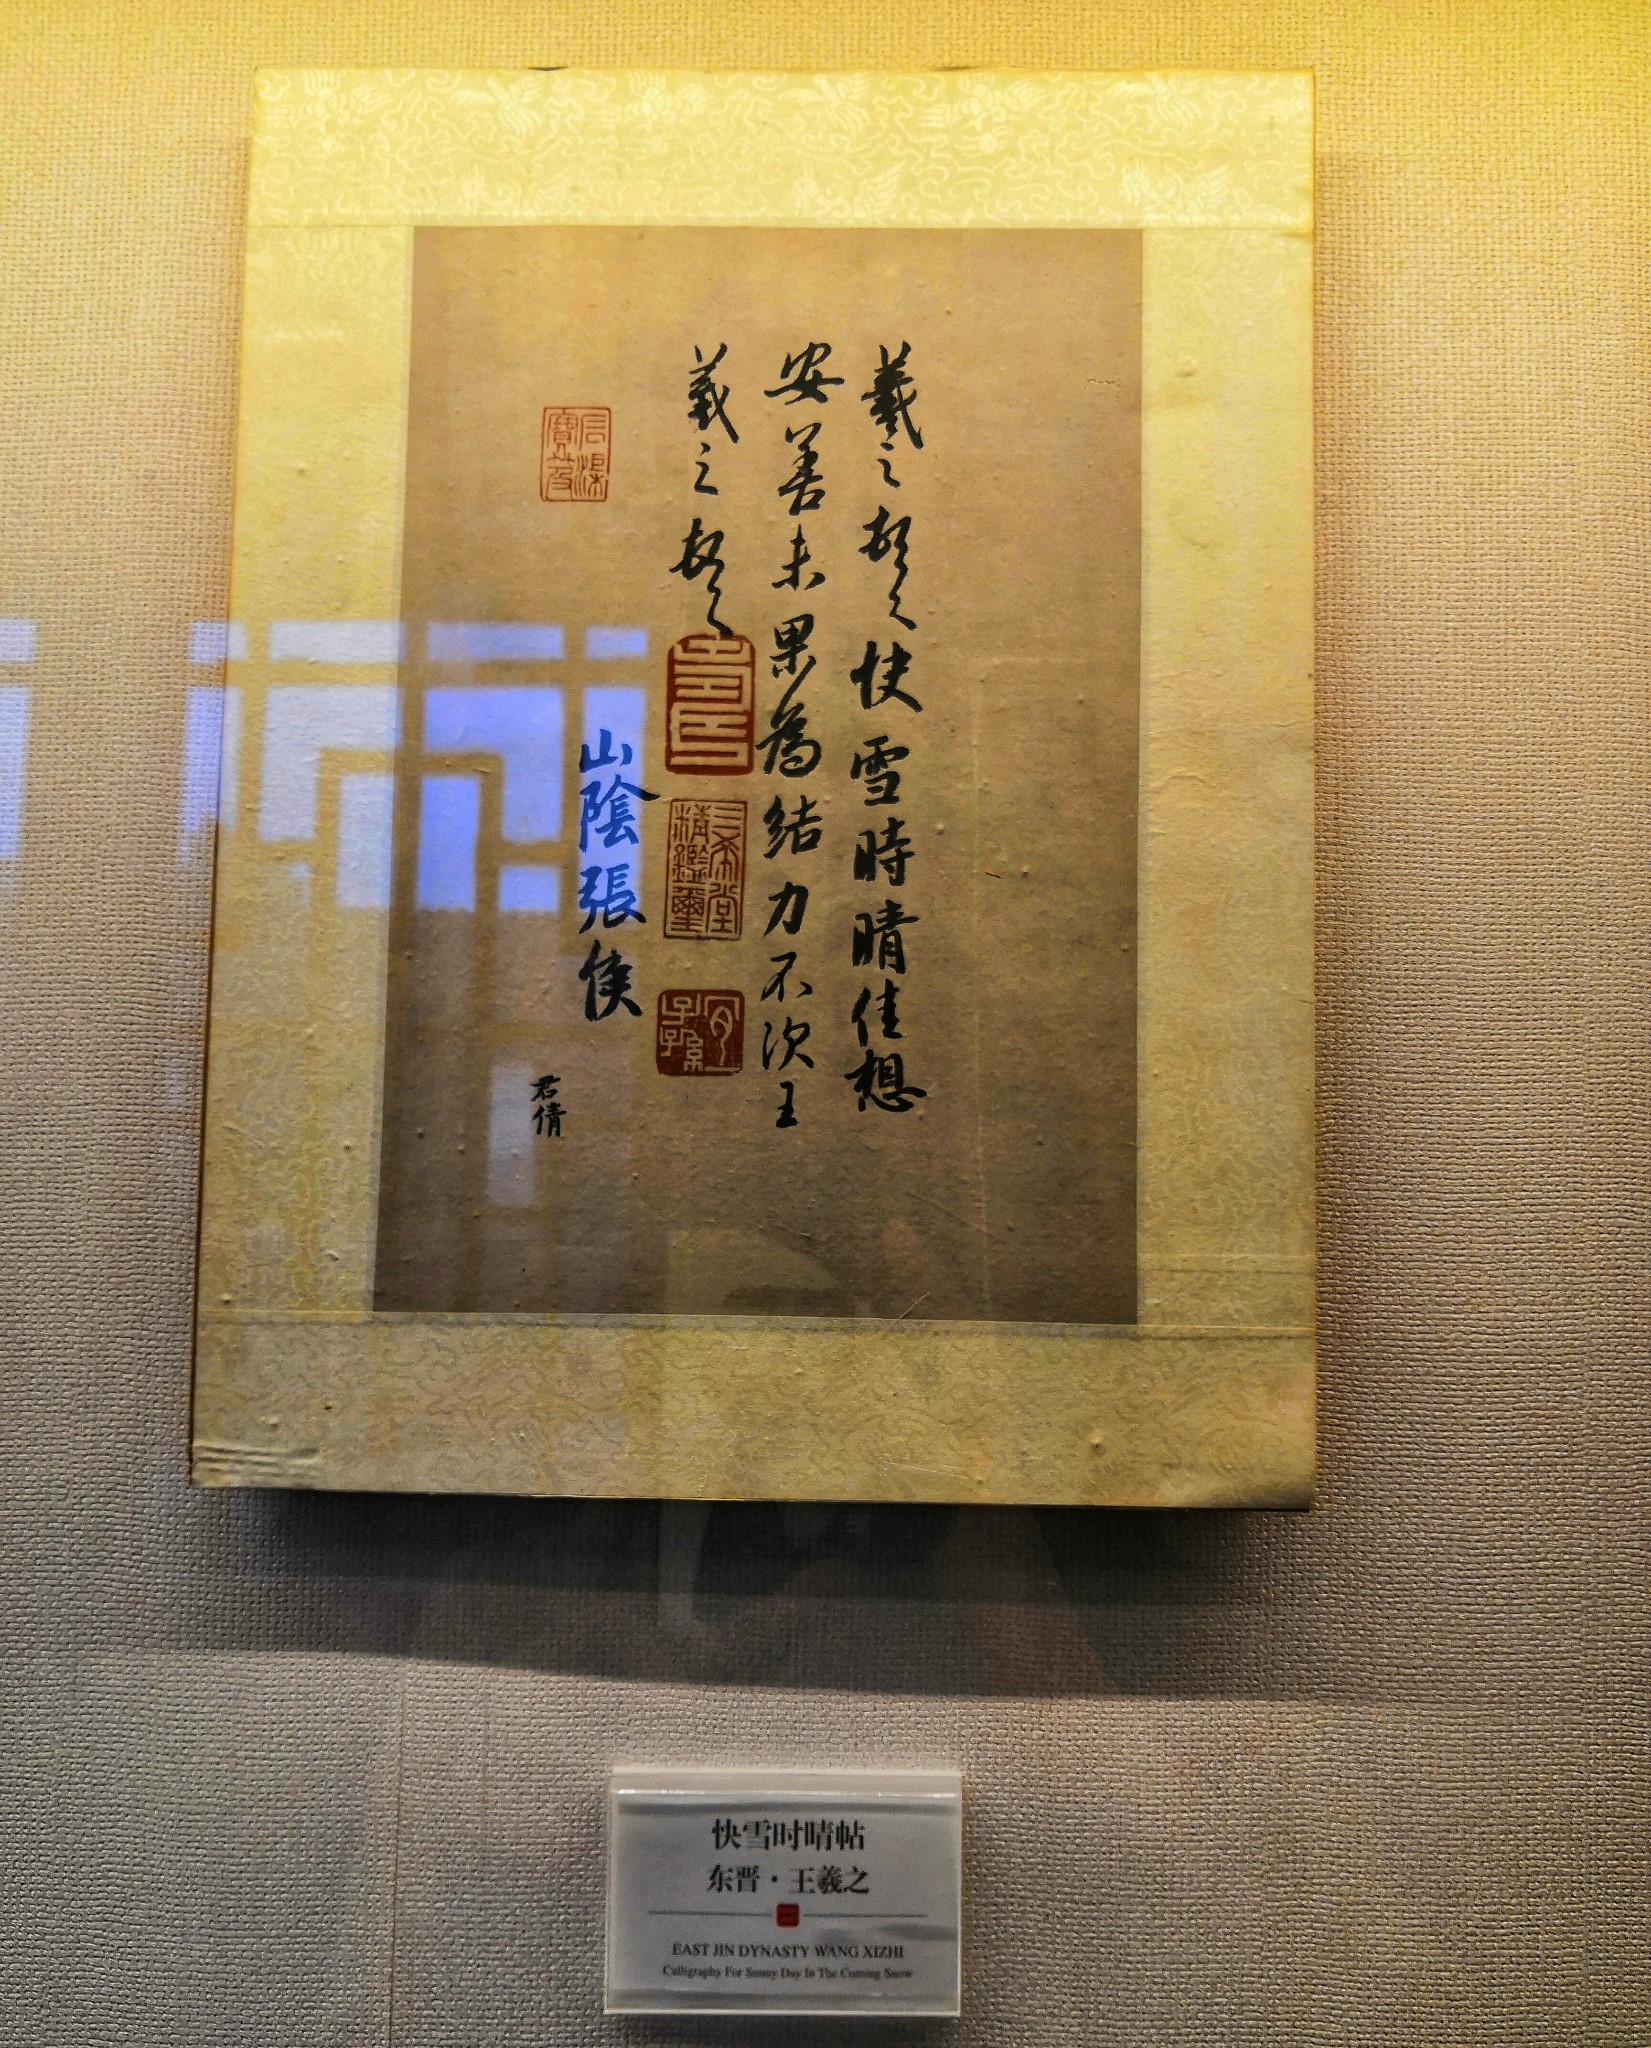 羲之頓首快雪時晴佳想
安善未果為結力不次王
羲之頓首
山陰張侯
君倩
三希堂
精鑑璽
宜
子孫
快雪时晴帖
东晋·王羲之
EAST JIN DYNASTY WANG XIZHI
Calligraphy For Sunny Day In The Coming Snow